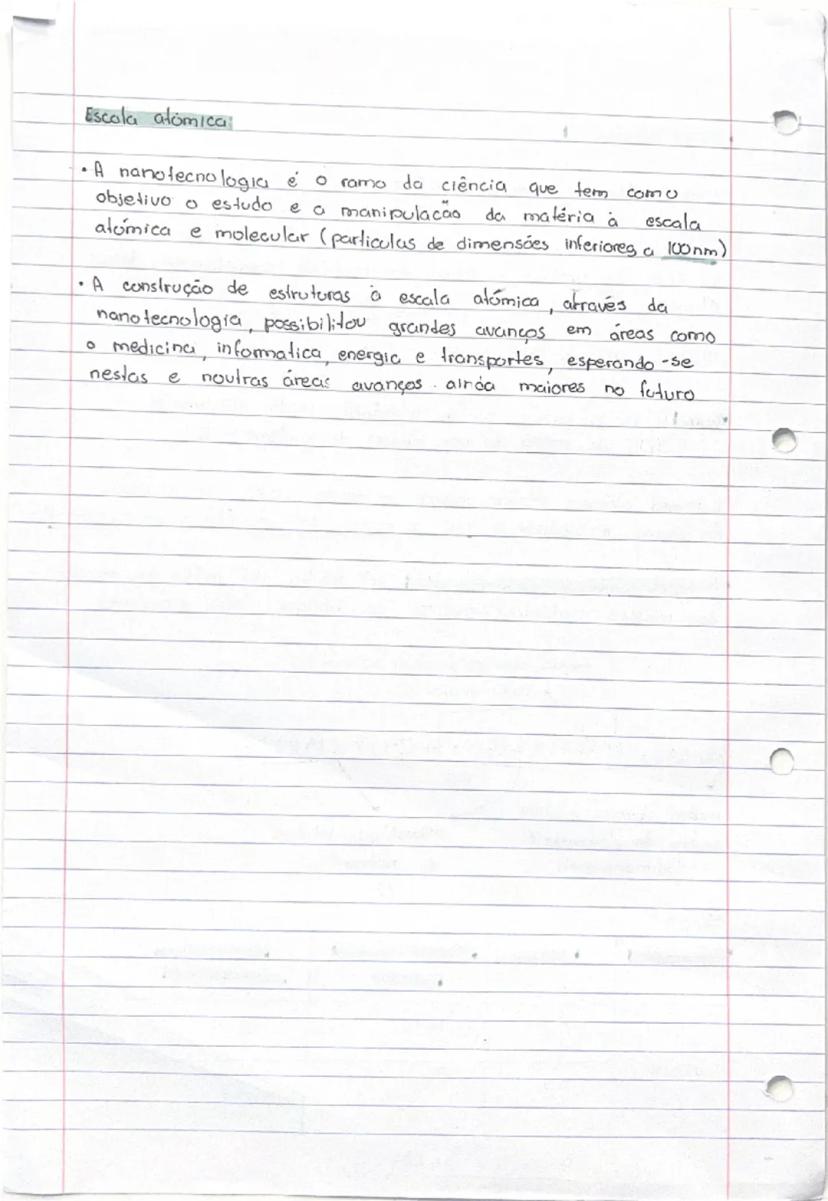 Escala atómica:
• A nanotecnologia é o ramo da ciência que tem como
objetivo o estudo e a manipulação da matéria à escala
atómica e molecular (particulas de dimensões inferiores a 100nm)
• A construção de estruturas à escala atómica, através da
nanotecnologia, possibilitou grandes avanços em áreas como
a medicina, informatica, energia e transportes, esperando-se
nestas e noutras áreas avanços ainda maiores no futuro